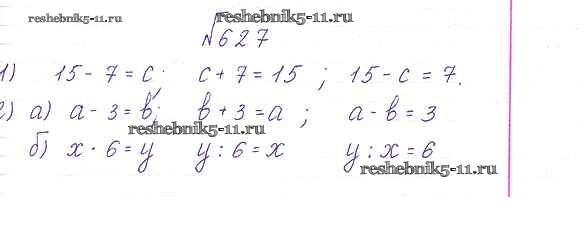 reshebnik5-11.ru reshebnik5-11.ru
№627
1) 15 - 7 = c; c + 7 = 15; 15 - c = 7.
2) а) a - 3 = b; b + 3 = a; a - b = 3
reshebnik5-11.ru
б) x · 6 = y y : 6 = x y : x = 6
reshebnik5-11.ru